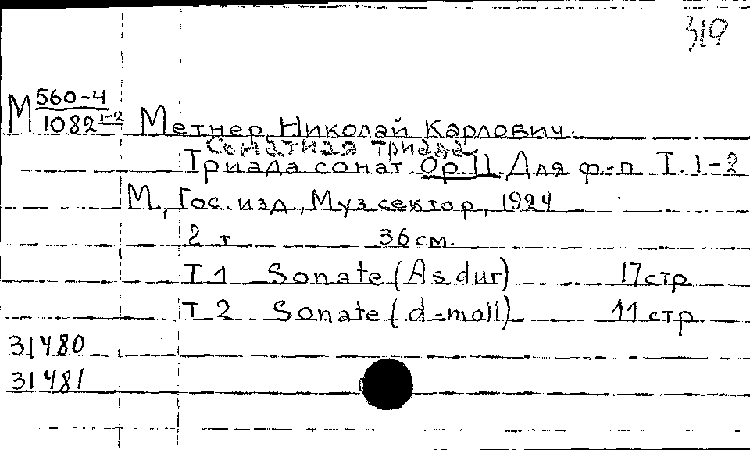 319
М 560-4
1082 1-2 Метнер, Николай Карлович.
Сонатная триада
Триада сонат. Op. 11. Для ф.-п. Т. 1-2
М., Гос. изд., Муз. сектор, 1924
2 т. 36 см.
Т. 1 Sonate (As dur) 17 стр.
Т. 2 Sonate (d-moll) 11 стр.
31480
31481